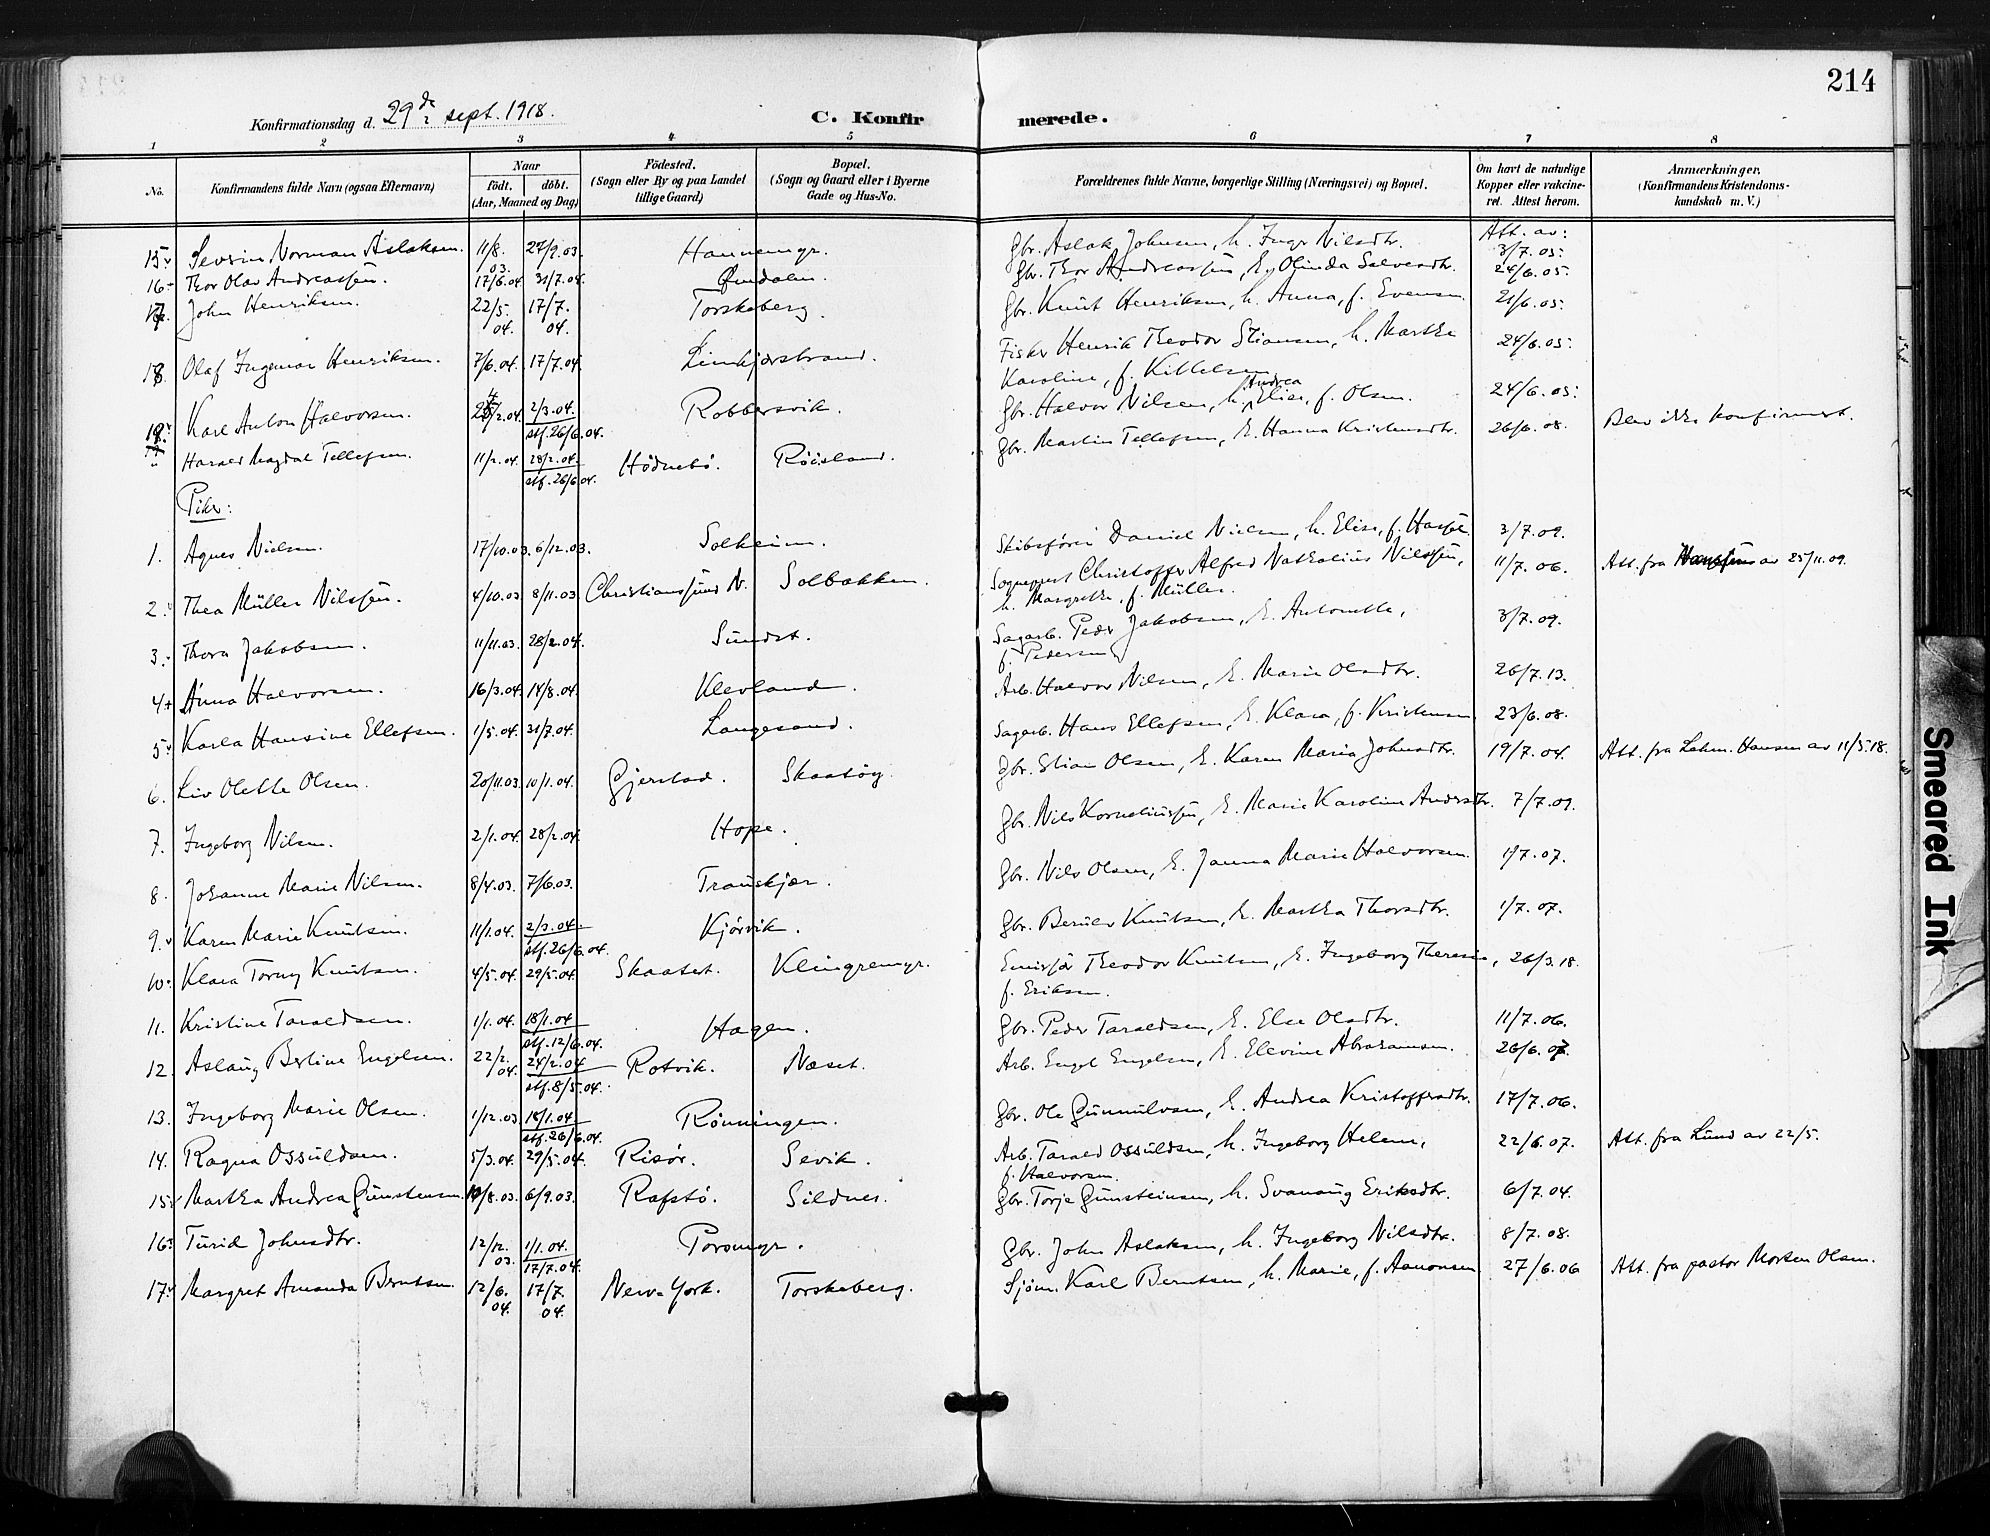 214
Konfirmationsdag d. 29de sept. 1918.
C. Konfirmerede.
1 2 3 4 5 6 7 8
No.
Konfirmandens fulde Navn (ogsaa Efternavn)
Naar
födt. döbt.
(Aar, Maaned og Dag)
Födested.
(Sogn eller By og paa Landet
tillige Gaard)
Bopæl.
(Sogn og Gaard eller i Byerne
Gade og Hus-No.
Forældrenes fulde Navne, borgerlige Stilling (Næringsvei) og Bopæl.
Om havt de naturlige
Kopper eller vakcine-
ret. Attest herom.
Anmærkninger.
(Konfirmandens Kristendoms-
kundskab m. V.)
Att. av:
15. Severin Norman Aslaksen. 11/8. 03. 27/9.03. Hannemyr. Gbr. Aslak Johnsen, h. Inger Nilsdtr. 3/7.05.
16. Thor Olav Andreassen. 17/6.04. 31/7.04. Gbr. Thor Andreassen, E. Olinda 24/6.05.
17. John Henriksen. 22/5. 04. 17/7. 04. Torskeberg. Gbr. Knut Henriksen, h. Anna, f. Evensen. 21/6.05.
18. Olaf Ingemar Henriksen. 7/6.04. 17/7.04. Fisker Henrik Theodor Stiansen, h. Martha
Karoline, f. Kittelsen. 24/6.05.
19. Karl Anton Halvorsen. /2.04. 2/3.04. stf. 26/6.04. Robbersvik. Gbr. Halvor Nilsen, h. Andrea Elise, f. Olsen. 24/6.05.
" Harald Magdal Tellefsen. 11/2.04. 28/2.04. stf. 26/6.04. Hödnebö. Röisland. Gbr. Martin Tellefsen, E. Hanna Kristensdtr. 26/6.08. Blev ikke konfirmert.
Piker:
1. Agnes Nielsen. 17/10.03. 6/12.03. Solheim. Skibsförer Daniel Nielsen, h. Elise, f. 3/7.09.
2. Thea Müller Nilssen. 4/10.03 8/11.03. Christianssund N. Solbakken. Sogneprest Christoffer Alfred Nathalius Nilssen,
h. Margrethe, f. Müller. 11/7.06. Att. fra av 25/11.09.
3. Thora Jakobsen. 11/11.03. 28/2.04. Sundet. Sagarb. Peder Jakobsen, E. Antonette,
f. Pedersen. 3/7.09.
4. Anna Halvorsen. 16/3.04. 14/8.04. Klevland. Arb. Halvor Nilsen, E. Marie Olsdtr. 26/7.13.
5. Karla Hansine Ellefsen. 1/5.04. 31/7.04. Langesand. Sagarb. Hans Ellefsen, E. Klara, f. Kristensen. 23/6.08.
6. Liv Olette Olsen. 20/11.03. 10/1.04. Gjerstad. Skaatöy. Gbr. Stian Olsen, E. Karen Maria Johnsdtr. 19/7.04. Att. fra Hansen av 11/5.18.
7. Ingeborg Nilsen. 2/1.04. 28/2.04. Hope. Gbr. Nils Korneliussen, E. Marie Karoline Andersdtr. 7/7.09.
8. Johanne Marie Nilsen. 8/4.03. 7/6.03. Gbr. Nils Olsen, E. Janna Marie Halvorsen. 1/7.07.
9. Karen Marie Knutsen. 11/1.04. 2/3.04. stf. 26/6.04. Kjörvik. Gbr. Berulv Knutsen, h. Martha Thorsdtr. 1/7.07.
10. Klara Torny Knutsen. 4/5.04. 29/5.04. Skaatet. Klingremyr. Emisjær Theodor Knutsen, E. Ingeborg Theresie,
f. Eriksen. 26/3.18.
11. Kristine Taraldsen. 1/1.04. 18/1.04 stf. 12/6.04. Hagen. Gbr. Peder Taraldsen, E. Else Olsdtr. 11/7.06.
12. Aslaug Bertine Engelsen. 22/2. 04. 24/2.04 stf. 8/5.04. Rotvik. Næset. Arb. Engel Engelsen, E. Ellevine Abrahamsen. 26/6.07.
13. Ingeborg Marie Olsen. 1/12.03 18/1.04 stf. 26/6.04. Rönningen. Gbr. Ole Gunnulvsen, E. Andrea Kristoffersdtr. 17/7.06.
14. Ragna Ossuldsen. 5/3.04. 29/5.04. Risör. Sevik. Arb. Tarald Ossuldsen, h. Ingeborg Helene,
f. Halvorsen. 22/6.07. Att. fra Lund av 22/5.
15. Martha Andrea Gunsteinsen. /8.03. 6/9.03. Rafstö. Sildnes. Gbr. Torje Gunsteinsen, h. Svanaug Eriksdtr. 6/7.04.
16. Turid Johnsdtr. 12/12. 03. 1/1.04. 17/7.04. Porsmyr. Gbr. John Aslaksen, h. Ingeborg Nilsdtr. 8/7.08.
17. Margret Amanda Berntsen. 12/6. 04. 17/7. 04. New-York. Torskeberg. Sjöm. Karl Berntsen, h. Marie, f. Aanonsen 27/6.06 Att. fra pastor Morten Olsen.
Smeared Ink